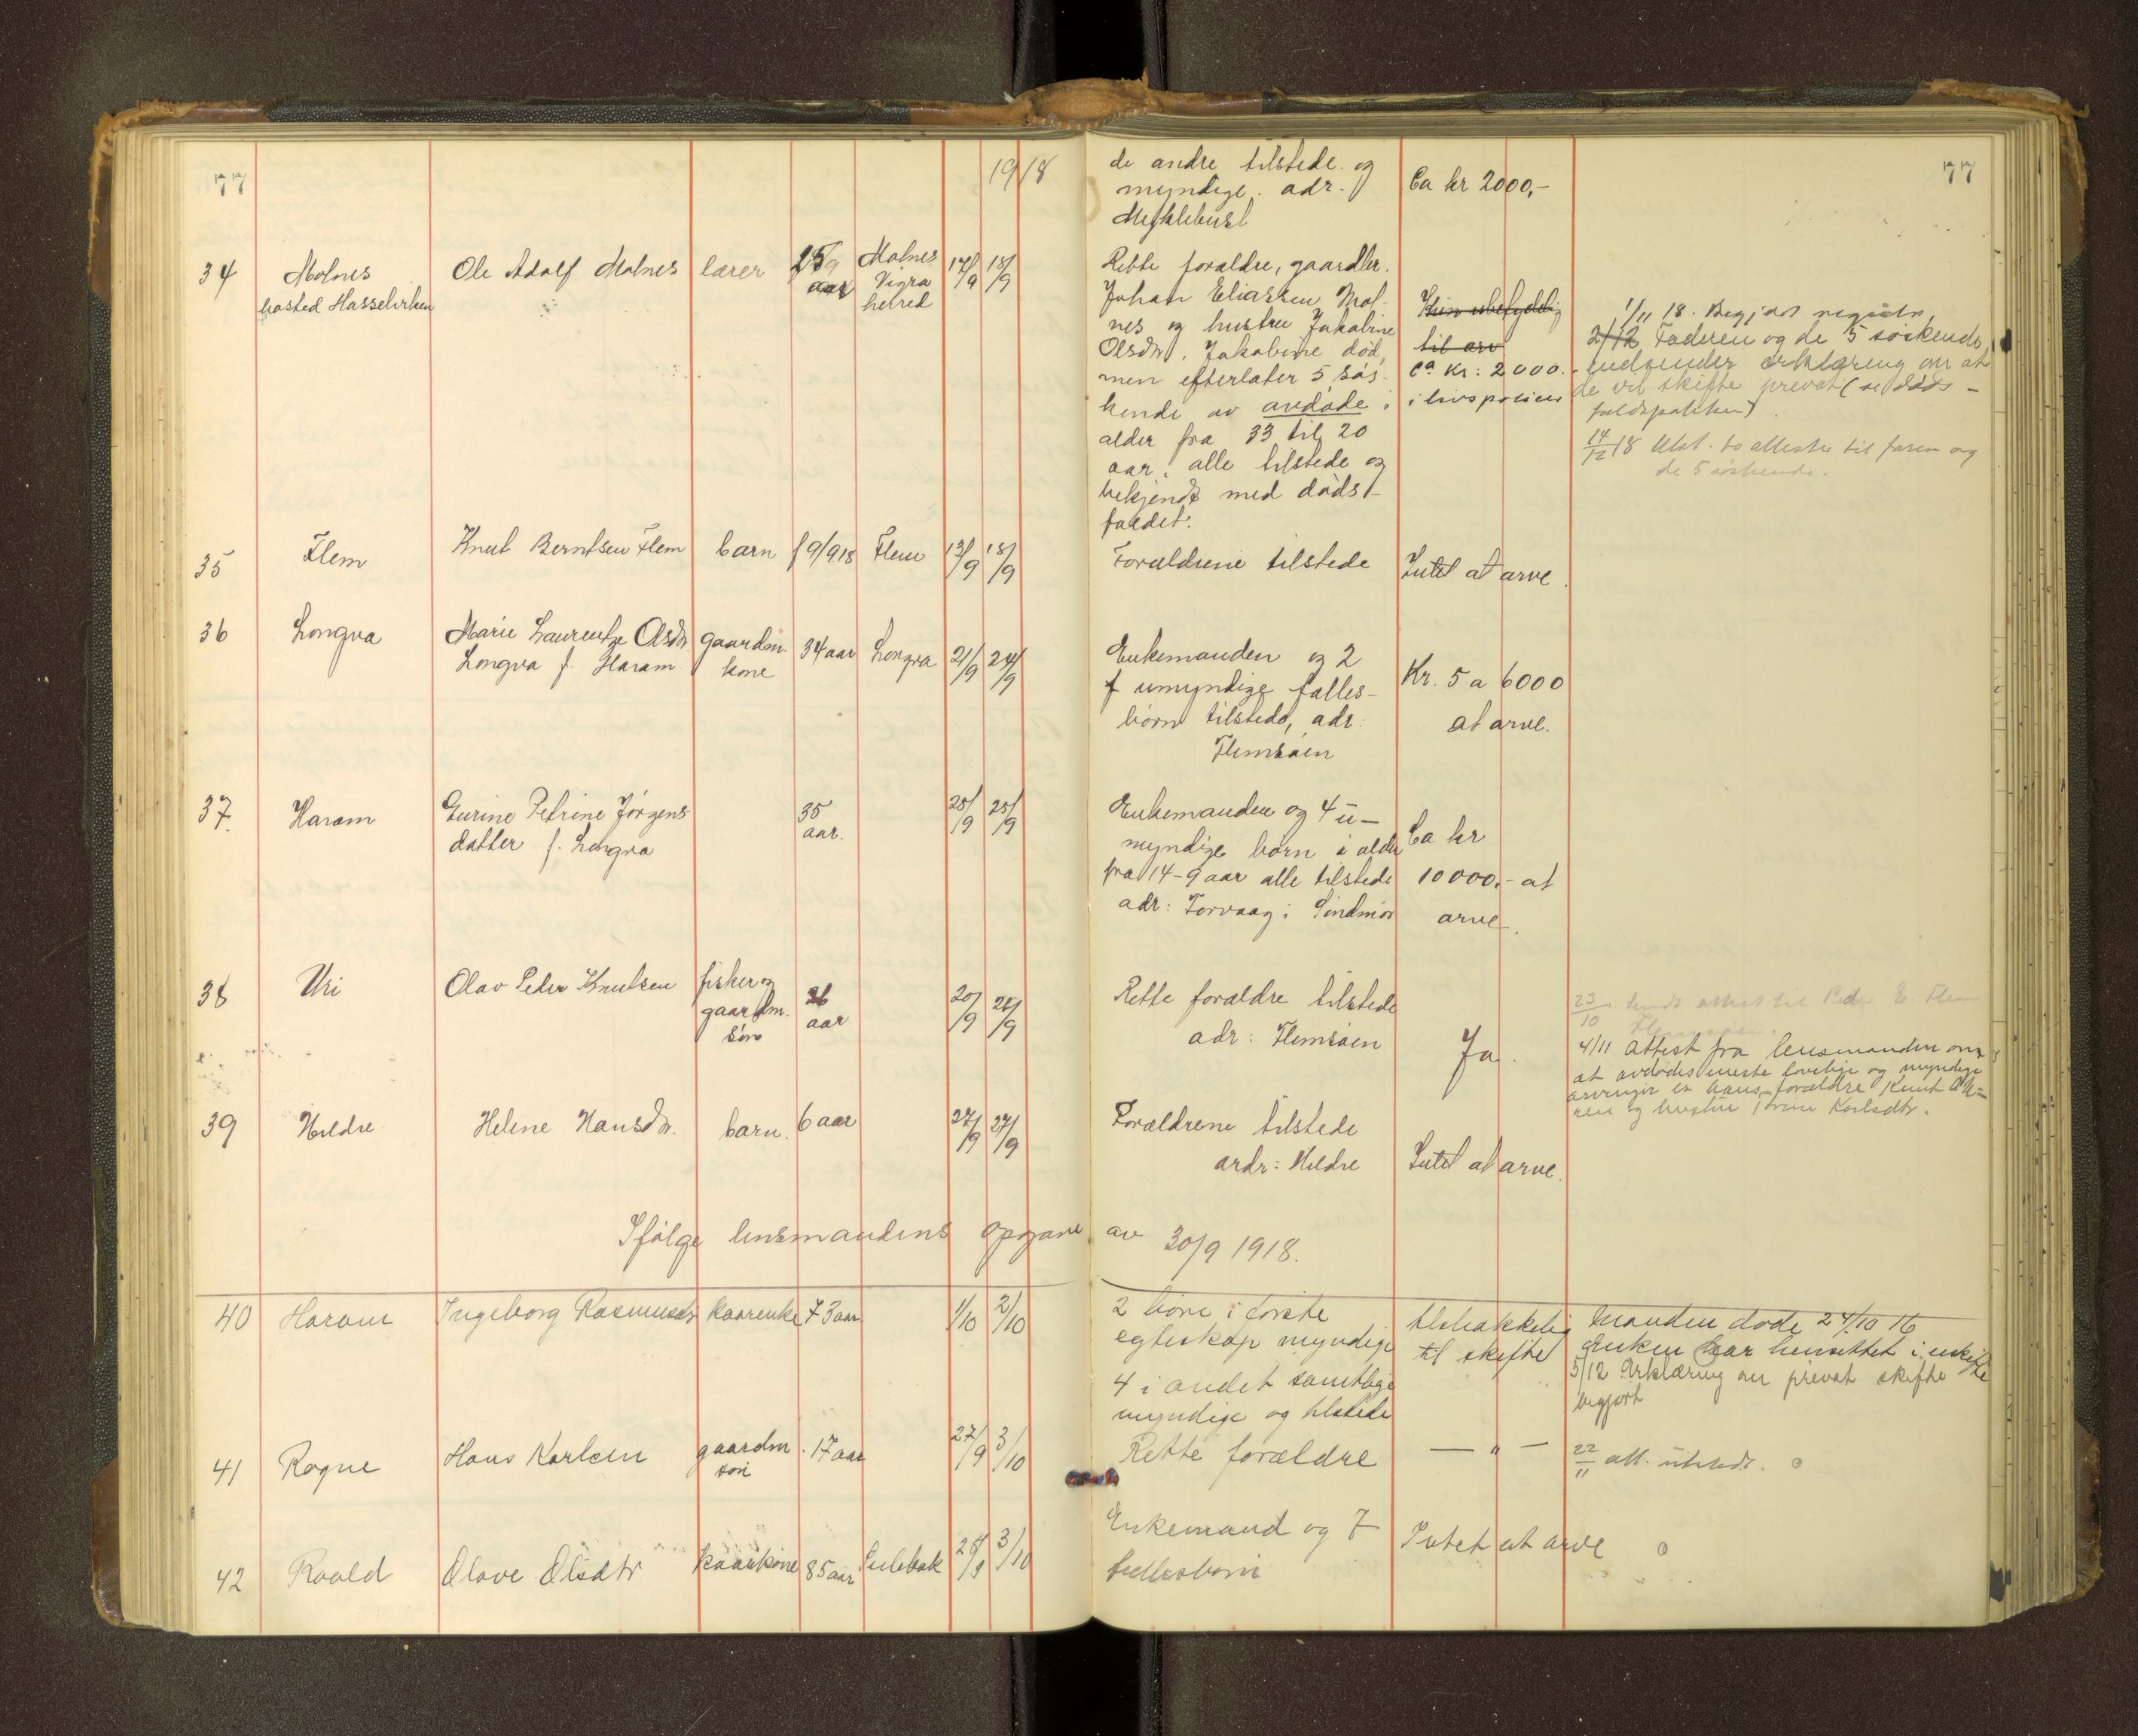 77
1918
de andre tilstede og
myndige. adr.
Myklebust
Ca kr 2000,-
77
34
Molnes
bosted Hasselviken
Ole Adolf Molnes
lærer
29
aar
Molnes
Vigra
herred
17/9
18/9
Rette forældre, gaardbr.
Johan Eliassen Mol-
nes og hustru Jakobine
Olsdtr. Jakobine død,
men efterlater 5 søs-
kende av avdøde i
alder fra 33 til 20
aar, alle tilstede og
bekjendt med døds-
faldet.
Kun ubetydelig
til arv
ca kr: 2000.-
i livspolicer
1/11 18. Begj. dat registr.
2/12 Faderen og de 5 søskende
indsender erklæring om at
de vil skifte privat (se døds-
faldspakken)
14/12 18 Utst. to attester til faren og
de 5 søskende.
35
Flem
Knut Berntsen Flem
barn
f 9/9 18
Flem
13/9
18/9
Forældrene tilstede
Intet at arve.
36
Longva
Marie Laurentze Olsdtr.
Longva f. Haram
gaardm.
kone
34 aar
Longva
21/9
24/9
Enkemanden og 2
umyndige fælles-
børn tilstede, adr:
Flemsøen
Kr. 5 a 6000
at arve.
37.
Haram
Gurine Petrine Jørgens
datter f. Longva
35
aar.
25/9
25/9
Enkemanden og 4 u-
myndige børn i alder
fra 14-9 aar alle tilstede
adr: Torvaag i Søndmør
Ca kr
10000,- at
arve.
38
Uri
Olav Peder Knutsen
fisker og
gaardm.
søn
26
aar
20/9
26/9
Rette forældre tilstede
adr: Flemsøen
Ja.
23/10 Sendt attest til Peder E. Flem
Flemsøen.
4/11 Attest fra lensmanden om
at avdødes eneste lovelige og myndige
arvinger er hans forældre Knut
og hustru Karlsdtr.
39
Hildre
Helene Hansdtr.
barn.
6 aar
27/9
27/9
Forældrene tilstede
ardr: Hildre
Intet at arve.
Ifølge lensmandens opgave av 30/9 1918.
40
Haram
Ingeborg Rasmusdtr
kaarenke
73 aar
1/10
2/10
2 børn i første
egteskap myndige
4 i andet samtlige
myndige og tilstede
tilstrækkelig
til skifte
Manden døde 24/10 16
Enken har hensittet i uskifte
5/12 Erklæring om privat skifte
begjært
41
Rogne
Hans Karlsen
gaardm.
søn
17 aar
27/9
3/10
Rette forældre
— " —
22/11 att. utstedt.
42
Roald
Olave Olsdtr
kaarkone
85 aar
Sulebak
28/9
3/10
Enkemand og 7
fællesbørn
Intet at arve